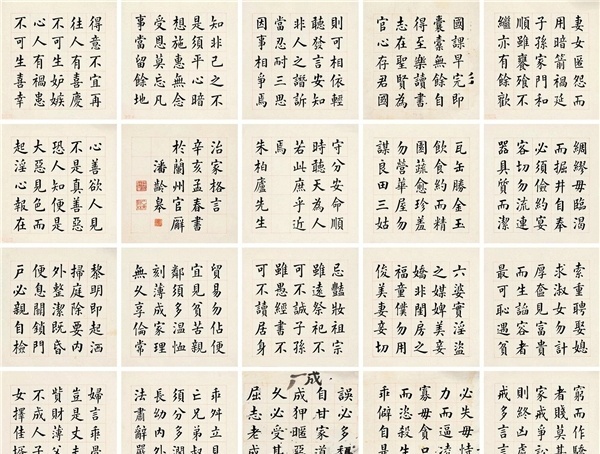 妻女匿怨而
用暗箭禍延
子孫家門和
順雖饔飧不
繼亦有餘歡
國課早完即
囊橐無餘自
得至樂讀書
志在聖賢為
官心存君國
則可相依輕
聽發言安知
非人之譖訴
當忍耐三思
因事相爭焉
知非己之不
是須平心暗
想施惠無念
受恩莫忘凡
事當留餘地
得意不宜再
往人有喜慶
不可生妒嫉
心人有禍患
不可生喜幸
綢繆毋臨渴
而掘井自奉
必須儉約宴
客切勿流連
器具質而潔
瓦缶勝金玉
飲食約而精
園蔬愈珍羞
勿營華屋勿
謀良田三姑
守分安命順
時聽天為人
若此庶乎近
焉
朱柏廬先生
治家格言
辛亥孟春書
於蘭州官廨
潘齡皋
心善欲人見
不是真善惡
恐人知便是
大惡見色而
起淫心報在
索重聘娶媳
求淑女勿計
厚奩見富貴
而生諂容者
最可恥遇貧
六婆實淫盜
之媒婢美妾
嬌非閨房之
福童僕勿用
俊美妻妾切
忌豔妝祖宗
雖遠祭祀不
可不誠子孫
雖愚經書不
可不讀居身
貿易勿佔便
宜見貧苦親
鄰須多溫恤
刻薄成家理
無久享倫常
黎明即起洒
掃庭除要內
外整潔既昏
便息關鎖門
戶必親自檢
窮而作驕
者賤莫甚
家戒爭訟
則終凶處
戒多言言
必失毋恃
力而逼孤
寡毋貪口
而恣殺生
乖僻自是
誤必多
自甘家道
成狎暱惡
久必受其
屈志老成
乖舛立見
亡兄弟叔
須分多潤
長幼內外
法肅辭嚴
婦言乖骨
豈是丈夫
貲財薄父
不成人子
女擇佳婿